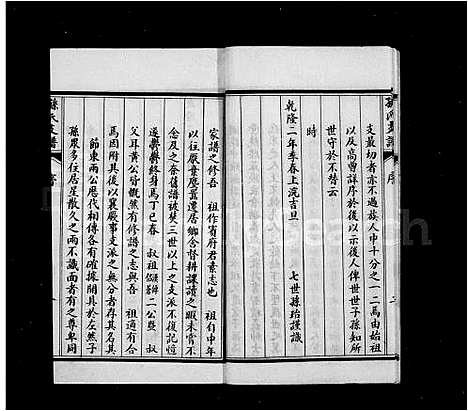 孫氏支譜
序
支最切者亦不過族人中十分之一二焉由始祖
以及高曾詳序於後以示後人俾世世子孫知所
世守於不替云
時
乾隆二年季春上浣吉旦
七世孫珆謹識
家譜之修吾 祖作賓府君素志也 祖自中年
以往厭韋麈囂遷居鄉舍督耕課讀之暇未嘗不
念及之奈舊譜被燹三世以上之支派不復記憶
遂鬱鬱終身焉丁巳春 叔祖 二公暨 叔
父耳黃公皆慨然有修譜之志與吾 祖適有合
焉因附其後以襄厥事支派之無分者存其名其
節東兩公歷代相傳各有確據開具於左然子
孫眾多住居星散久之兩不識面者有之尊卑同
孫氏支譜
序